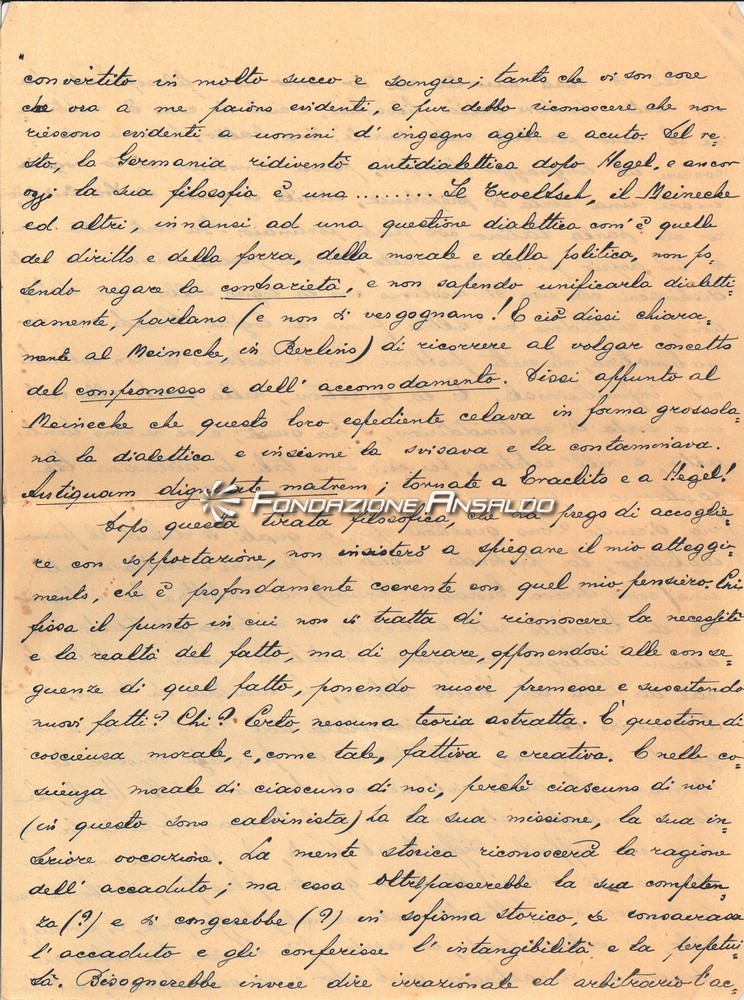 "
convertito in molto succo e sangue; tanto che vi son cose
che ora a me paiono evidenti, e pur debbo riconoscere che non
riescono evidenti a uomini d' ingegno agile e acuto. Del re=
sto, la Germania ridiventò antidialettica dopo Hegel, e ancor
oggi la sua filosofia è una ........ Il Troeltsch, il Meinecke
ed altri, innanzi ad una questione dialettica com' è quella
del diritto e della forza, della morale e della politica, non po=
tendo negare la contrarietà, e non sapendo unificarla dialetti=
camente, parlano (e non si vergognano! E ciò dissi chiara=
mente al Meinecke, in Berlino) di ricorrere al volgar concetto
del compromesso e dell' accomodamento. Dissi appunto al
Meinecke che questo loro espediente celava in forma grossola=
na la dialettica e insieme la svisava e la contaminava.
Antiquam matrem; tornate a Eraclito e a Hegel!
FONDAZIONE ANSALDO
Dopo questa tirata filosofica, che La prego di accoglie=
re con sopportazione, non insisterò a spiegare il mio atteggia=
mento, che è profondamente coerente con quel mio pensiero. Chi
fissa il punto in cui non si tratta di riconoscere la necessità
e la realtà del fatto, ma di operare, opponendosi alle conse=
guenze di quel fatto, ponendo nuove premesse e suscitando
nuovi fatti? Chi? Certo, nessuna teoria astratta. È questione di
coscienza morale, e, come tale, fattiva e creativa. E nelle co=
scienza morale di ciascuno di noi, perchè ciascuno di noi
(in questo sono calvinista) ha la sua missione, la sua in=
teriore vocazione. La mente storica riconoscerà la ragione
dell' accaduto; ma essa oltrepasserebbe la sua competen=
za (?) e si congerebbe (?) in sofisma storico, se consacrasse
l' accaduto e gli conferisse l' intangibilità e la perpetui=
tà. Bisognerebbe invece dire irrazionale ed arbitrario l'ac=